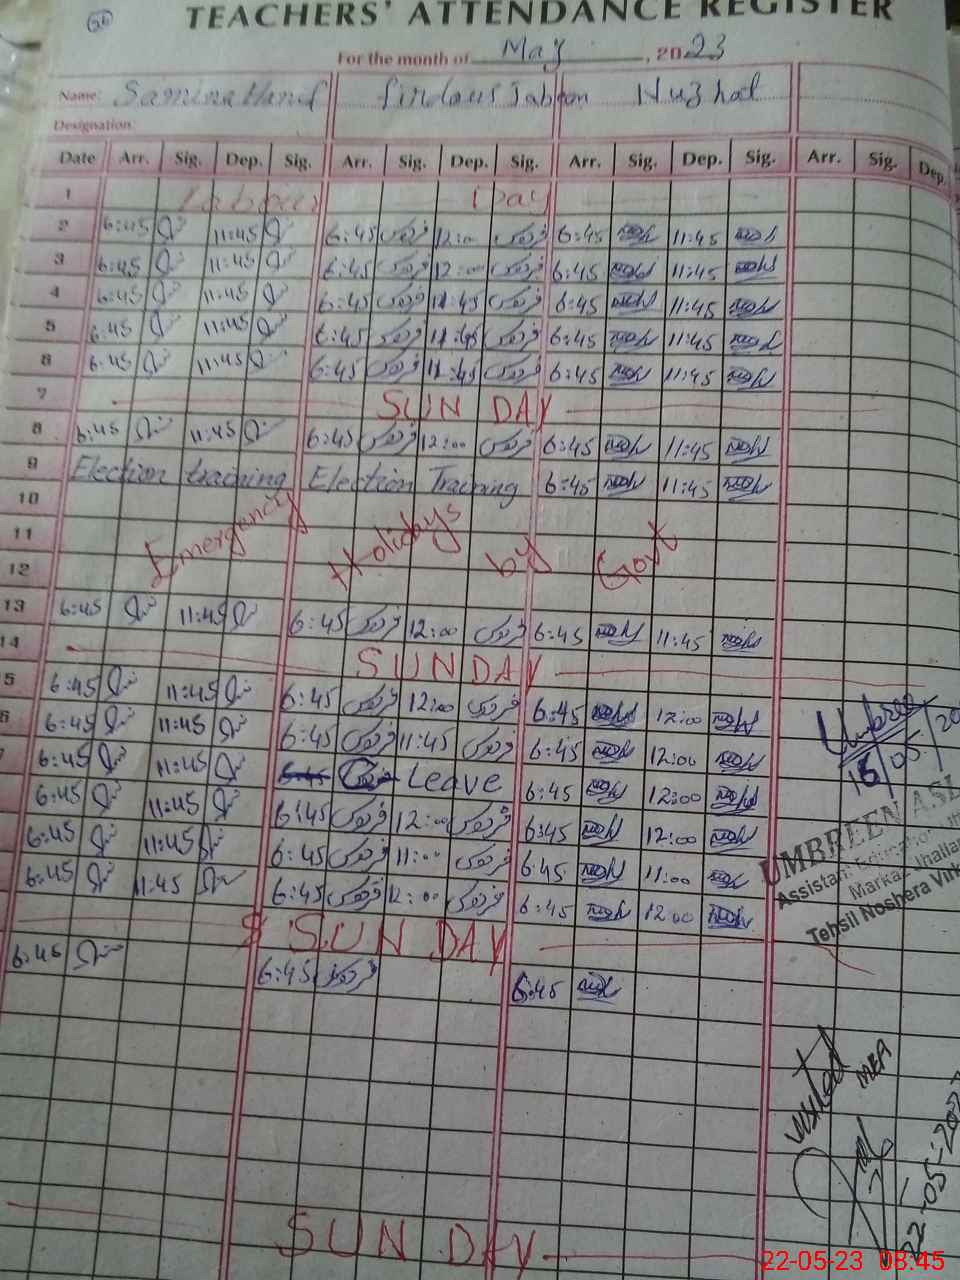 TEACHERS' ATTENDANCE REGISTER
For the month of May, 2023
Name: Samina Hanif Firdous Jabeen Nuzhat
Designation
Date Arr. Sig. Dep. Sig. Arr. Sig. Dep. Sig. Arr. Sig. Dep. Sig. Arr. Sig. Dep.
1 Labour Day
2 6:45 11:45 6:45 فردوس 12:00 فردوس 6:45 11:45
3 6:45 11:45 6:45 فردوس 12:00 فردوس 6:45 11:45
4 6:45 11:45 6:45 فردوس 11:45 فردوس 6:45 11:45
5 6:45 11:45 6:45 فردوس 11:45 فردوس 6:45 11:45
6 6:45 11:45 6:45 فردوس 11:45 فردوس 6:45 11:45
7 SUN DAY
8 6:45 11:45 6:45 فردوس 12:00 فردوس 6:45 11:45
9 Election training Election Training 6:45 11:45
10
11 Emergency Holidays by Govt
12
13 6:45 11:45 6:45 فردوس 12:00 فردوس 6:45 11:45
14 SUNDAY
5 6:45 11:45 6:45 فردوس 12:00 فردوس 6:45 12:00
6 6:45 11:45 6:45 فردوس 11:45 فردوس 6:45 12:00
7 6:45 11:45 6:45 Leave 6:45 12:00
6:45 11:45 6:45 فردوس 12:00 فردوس 6:45 12:00
6:45 11:45 6:45 فردوس 11:00 فردوس 6:45 11:00
6:45 11:45 6:45 فردوس 12:00 فردوس 6:45 12:00
SUN DAY
6:45 6:45 فردوس 6:45
SUN DAY
Umbreen
16/05/20
UMBREEN ASL
Assistant Education
Marka Jhallar
Tehsil Noshera Virk
visited
MEA
22-05-202
22-05-23 08:45